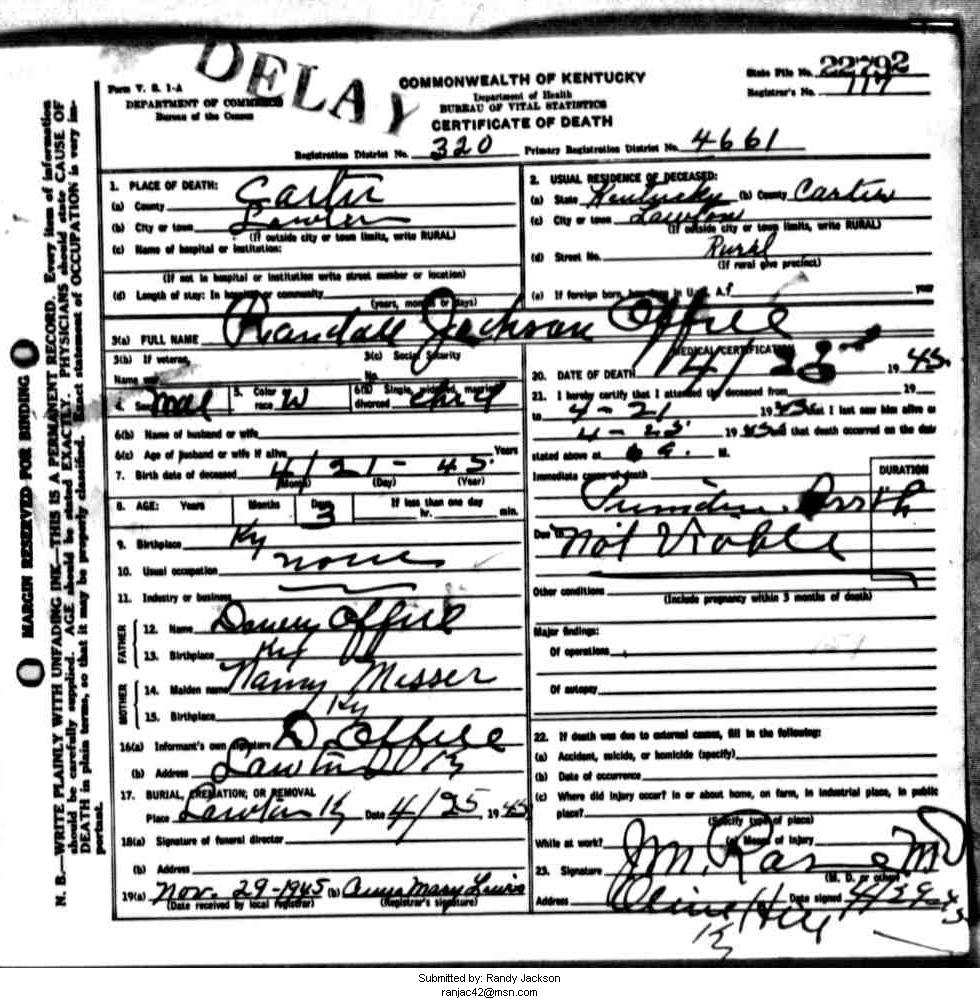 DELAY
Form V. S. 1-A
DEPARTMENT OF COMMERCE
Bureau of the Census
COMMONWEALTH OF KENTUCKY
Department of Health
BUREAU OF VITAL STATISTICS
CERTIFICATE OF DEATH
State File No. 22792
Registrar's No. 117
Registration District No. 320 Primary Registration District No. 4661
MARGIN RESERVED FOR BINDING
N. B.—WRITE PLAINLY WITH UNFADING INK—THIS IS A PERMANENT RECORD. Every item of information
should be carefully supplied. AGE should be stated EXACTLY. PHYSICIANS should state CAUSE OF
DEATH in plain terms, so that it may be properly classified. Exact statement of OCCUPATION is very im-
portant.
1. PLACE OF DEATH:
(a) County Carter
(b) City or town Lawton
(If outside city or town limits, write RURAL)
(c) Name of hospital or institution:
(If not in hospital or institution write street number or location)
(d) Length of stay: In hospital or community
(years, months or days)
2. USUAL RESIDENCE OF DECEASED:
(a) State Kentucky (b) County Carter
(c) City or town Lawton
(If outside city or town limits, write RURAL)
(d) Street No. Rural
(If rural give precinct)
(e) If foreign born, how long in U. S. A.? year
3(a) FULL NAME Randall Jackson Offill
3(b) If veteran,
Name war
3(c) Social Security
No.
4. Sex Mal 5. Color race W 6(a) Single, widowed, married, divorced child
6(b) Name of husband or wife
6(c) Age of husband or wife if alive Years
7. Birth date of deceased 4/21-45
(Month) (Day) (Year)
8. AGE: Years Months Days 3 If less than one day hr. min.
9. Birthplace Ky
10. Usual occupation none
11. Industry or business
FATHER
12. Name Offill
13. Birthplace Ky
MOTHER
14. Maiden name Nancy Messer
15. Birthplace Ky
16(a) Informant's own signature D. Offill
(b) Address Lawton Ky
17. BURIAL, CREMATION, OR REMOVAL
Place Lawton Ky Date 4/25 1945
18(a) Signature of funeral director
(b) Address
19(a) Nov. 29-1945 (b) Anna Mary Lewis
(Date received by local registrar) (Registrar's signature)
MEDICAL CERTIFICATION
20. DATE OF DEATH 4/ 1945.
21. I hereby certify that I attended the deceased from 19
to 4-21 1945 that I last saw him alive on
4-23 1945 and that death occurred on the date
stated above at 6 a. M.
Immediate cause of death DURATION
Birth
Due to Not Viable
Other conditions
(Include pregnancy within 3 months of death)
Major findings:
Of operations
Of autopsy
22. If death was due to external causes, fill in the following:
(a) Accident, suicide, or homicide (specify)
(b) Date of occurrence
(c) Where did injury occur? In or about home, on farm, in industrial place, in public
place?
(Specify type of place)
While at work? (e) Means of injury
23. Signature J M MD
(M. D. or other)
Address Olive Hill Date signed 4/29-45
Ky
Submitted by: Randy Jackson
ranjac42@msn.com